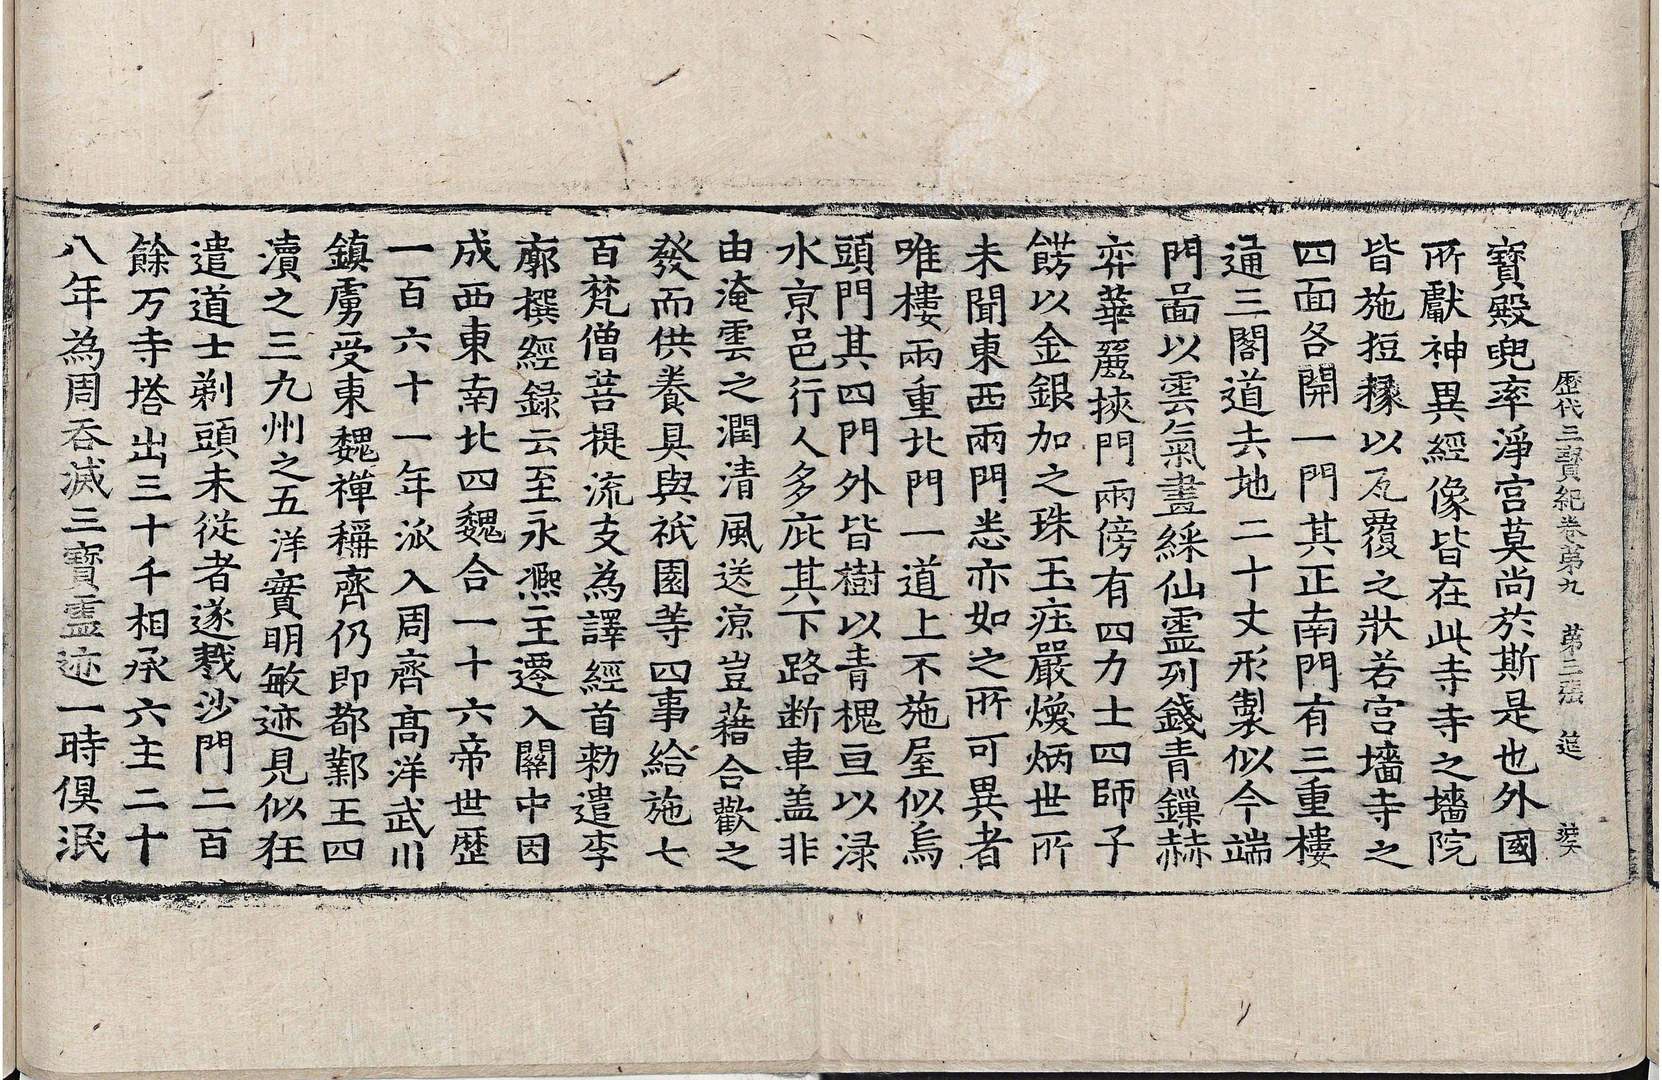 歷代三寶紀卷第九 第三張 筵
寶殿兜率淨宮莫尚於斯是也外國
所獻神異經像皆在此寺寺之墻院
皆施短椽以瓦覆之狀若宮墻寺之
四面各開一門其正南門有三重樓
通三閣道去地二十丈形製似今端
門啚以雲氣畫綵仙靈列錢青鏁赫
弈華麗挾門兩傍有四力士四師子
餝以金銀加之珠玉疘嚴煥炳世所
未聞東西兩門悉亦如之所可異者
唯樓兩重北門一道上不施屋似烏
頭門其四門外皆樹以青槐亘以渌
水京邑行人多庇其下路断車盖非
由淹雲之潤清風送涼豈藉合歡之
發而供養具與祇園等四事給施七
百梵僧菩提流支為譯經首勑遣李
廓撰經録云至永凞主遷入關中因
成西東南北四魏合一十六帝世歷
一百六十一年派入周齊髙洋武川
鎮虜受東魏禪稱齊仍即都鄴王四
瀆之三九州之五洋實明敏迹見似狂
遣道士剃頭未從者遂戮沙門二百
餘万寺塔出三十千相承六主二十
八年為周吞滅三寶靈迹一時俱泯